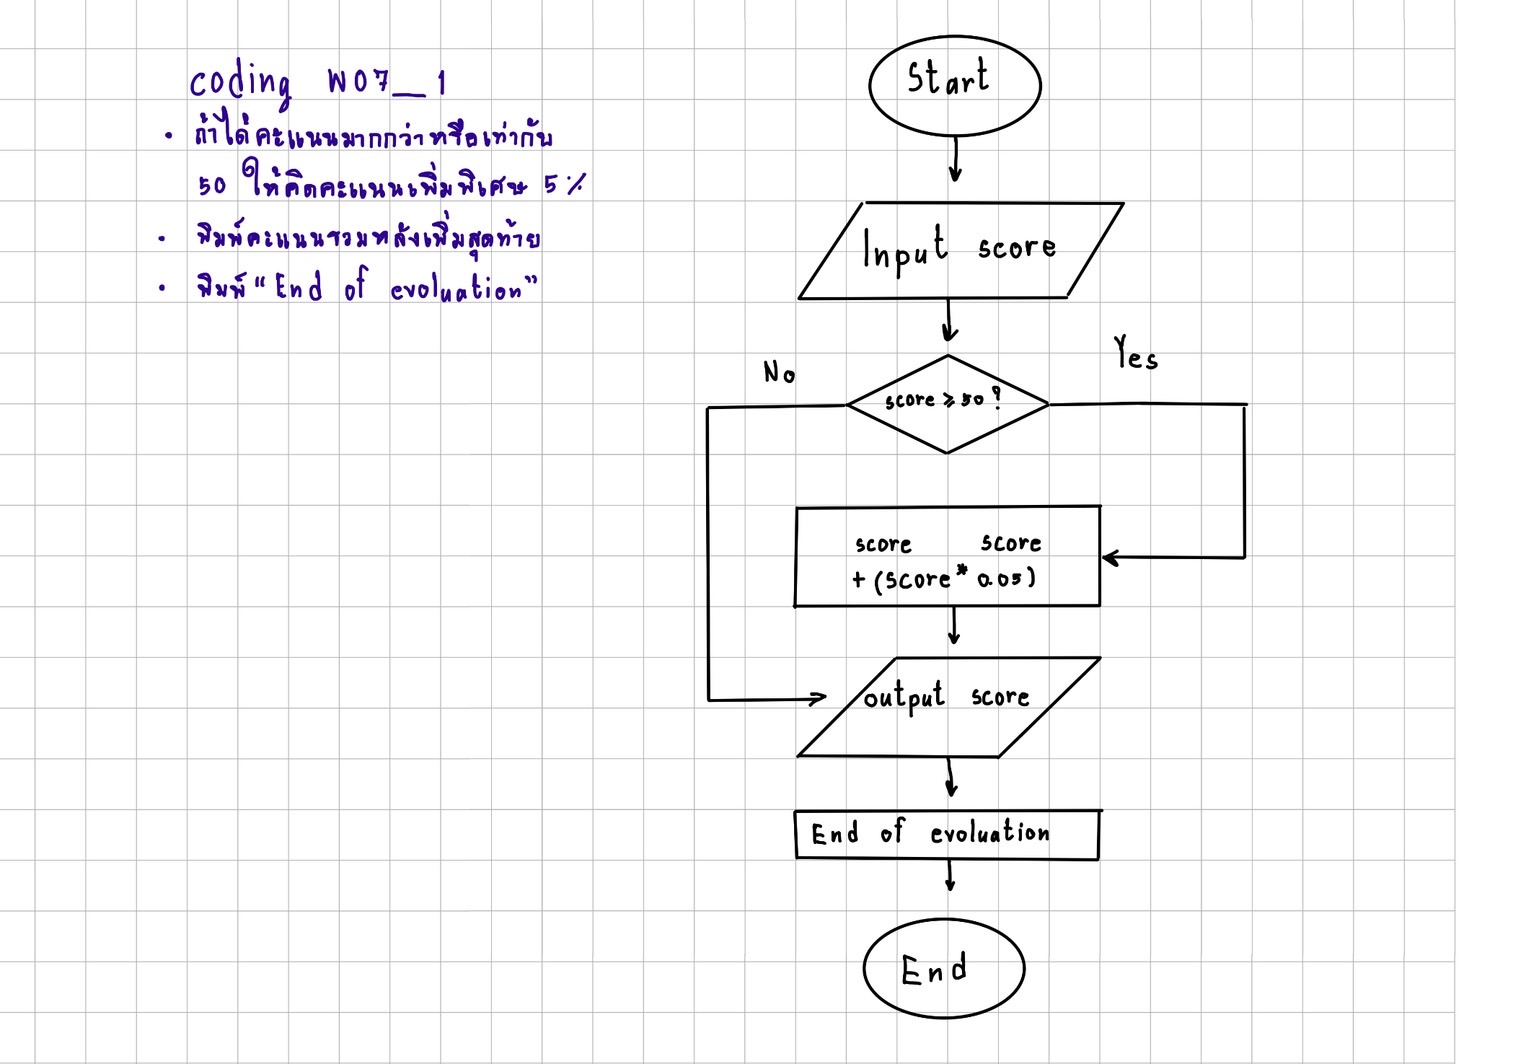 coding W07_1
• ถ้าได้คะแนนมากกว่าหรือเท่ากับ
50 ให้คิดคะแนนเพิ่มพิเศษ 5%
• พิมพ์คะแนนรวมหลังเพิ่มสุดท้าย
• พิมพ์ “End of evoluation”
Start
Input score
No
Yes
score ≥ 50 ?
score score
+ (score * 0.05)
output score
End of evoluation
End